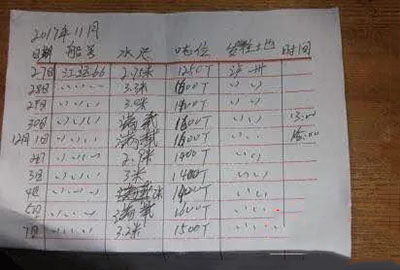 2017年11月
日期 船名 水尺 吨位 时间
27日 江运66 2.75米 1250T
28日 〃〃〃 3.3米 1600T 〃〃
29日 〃〃〃 3.0米 1400T 〃〃
30日 〃〃〃 满载 1600T 〃〃 13:00
12月1日 〃〃〃 满载 1600T 〃〃
2日 〃〃〃 2.9米 1400T 〃〃
3日 〃〃〃 3米 1400T 〃〃
4日 〃〃〃 满载 1400T 〃〃
5日 〃〃〃 满载 1600T 〃〃
7日 〃〃〃 3.2米 1500T 〃〃